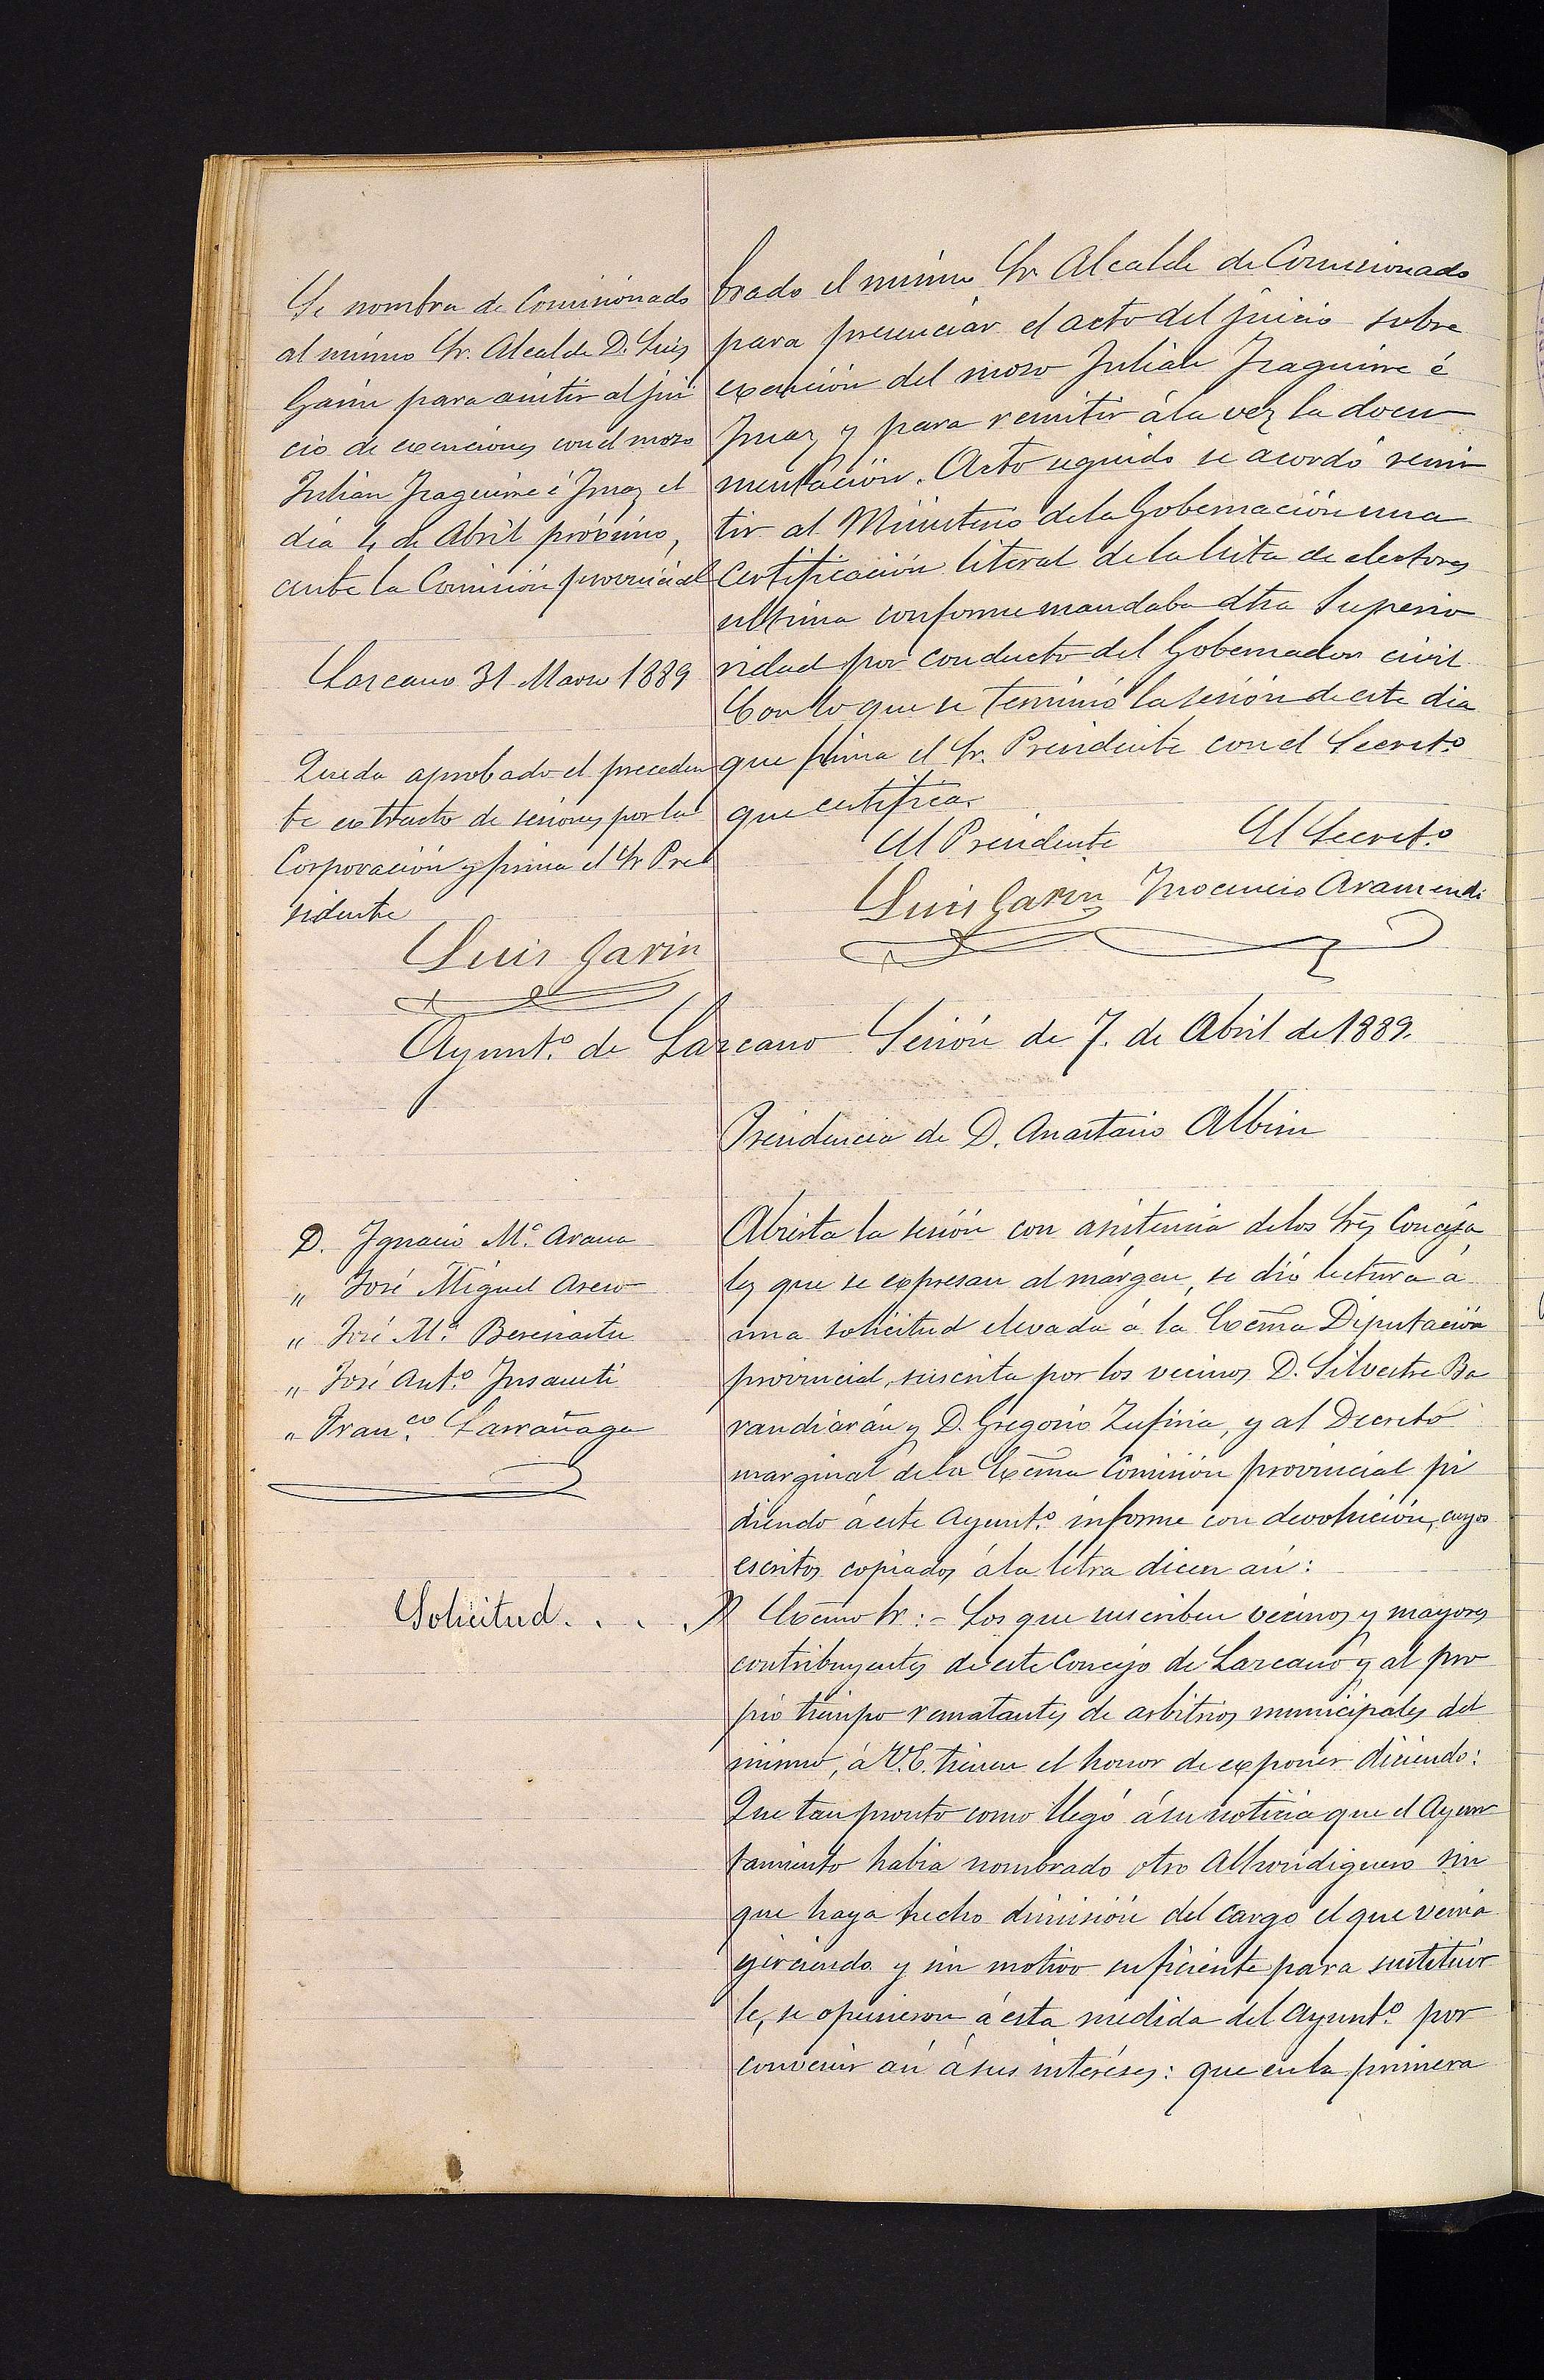 Se nombra de Comisionado
al mismo Sr. Alcalde D. Luis
Garin para asistir al jui
cio de exenciones con el mozo
Julian Izaguirre é Imaz el
dia 4 de Abril próximo,
ante la Comisión provincial
Lazcano 31 Marzo 1889
Queda aprobado el preceden
te extracto de sesiones por la
Corporación y firma el Sr Pre
sidente
Luis Garin
brado el mismo Sr. Alcalde de Comisionado
para presenciar el acto del juicio sobre
exención del mozo Julian Izaguirre é
Imaz y para remitir á la vez la docu
mentación. Acto seguido se acordó remi
tir al Ministerio de la Gobernación una
Certificación literal de la lista de electores
ultima conforme mandaba dha Superio
ridad por conducto del Gobernador civil
Con lo que se terminó la sesión de este dia
que firma el Sr. Presidente con el Secret.º
que certifica.
El Presidente El Secret.º
Luis Garin Inocencio Aramendi
Ayunt.º de Lazcano Sesión de 7. de Abril de 1889.
Presidencia de D. Anastasio Albisu
D. Ignacio M.ª Arana
" José Miguel
" José M.ª Berasiartu
" José Ant.º Insausti
" Fran.co Larrañaga
Abierta la sesión con asistencia de los Sres Conceja
les que se expresan al márgen, se dió lectura á
una solicitud elevada á la Excma Diputación
provincial, suscrita por los vecinos D. Silvestre Ba
randiarán y D. Gregorio Zufiria, y al Decreto
marginal de la Excma Comisión provincial pi
diendo á este Ayunt.º informe con devolución, cuyos
escritos copiados á la letra dicen asi:
Solicitud. . . .
Excmo Sr: = Los que suscriben vecinos y mayores
contribuyentes de este Concejo de Lazcano y al pro
pio tiempo rematantes de arbitrios municipales del
mismo, á V.E. tienen el honor de exponer diciendo:
Que tan pronto como llegó á su noticia que el Ayun
tamiento habia nombrado otro Alhondiguero sin
que haya hecho dimisión del cargo el que venia
ejerciendo y sin motivo suficiente para sustituir
le, se opusieron á esta medida del Ayunt.º por
convenir asi á sus intereses: que en la primera